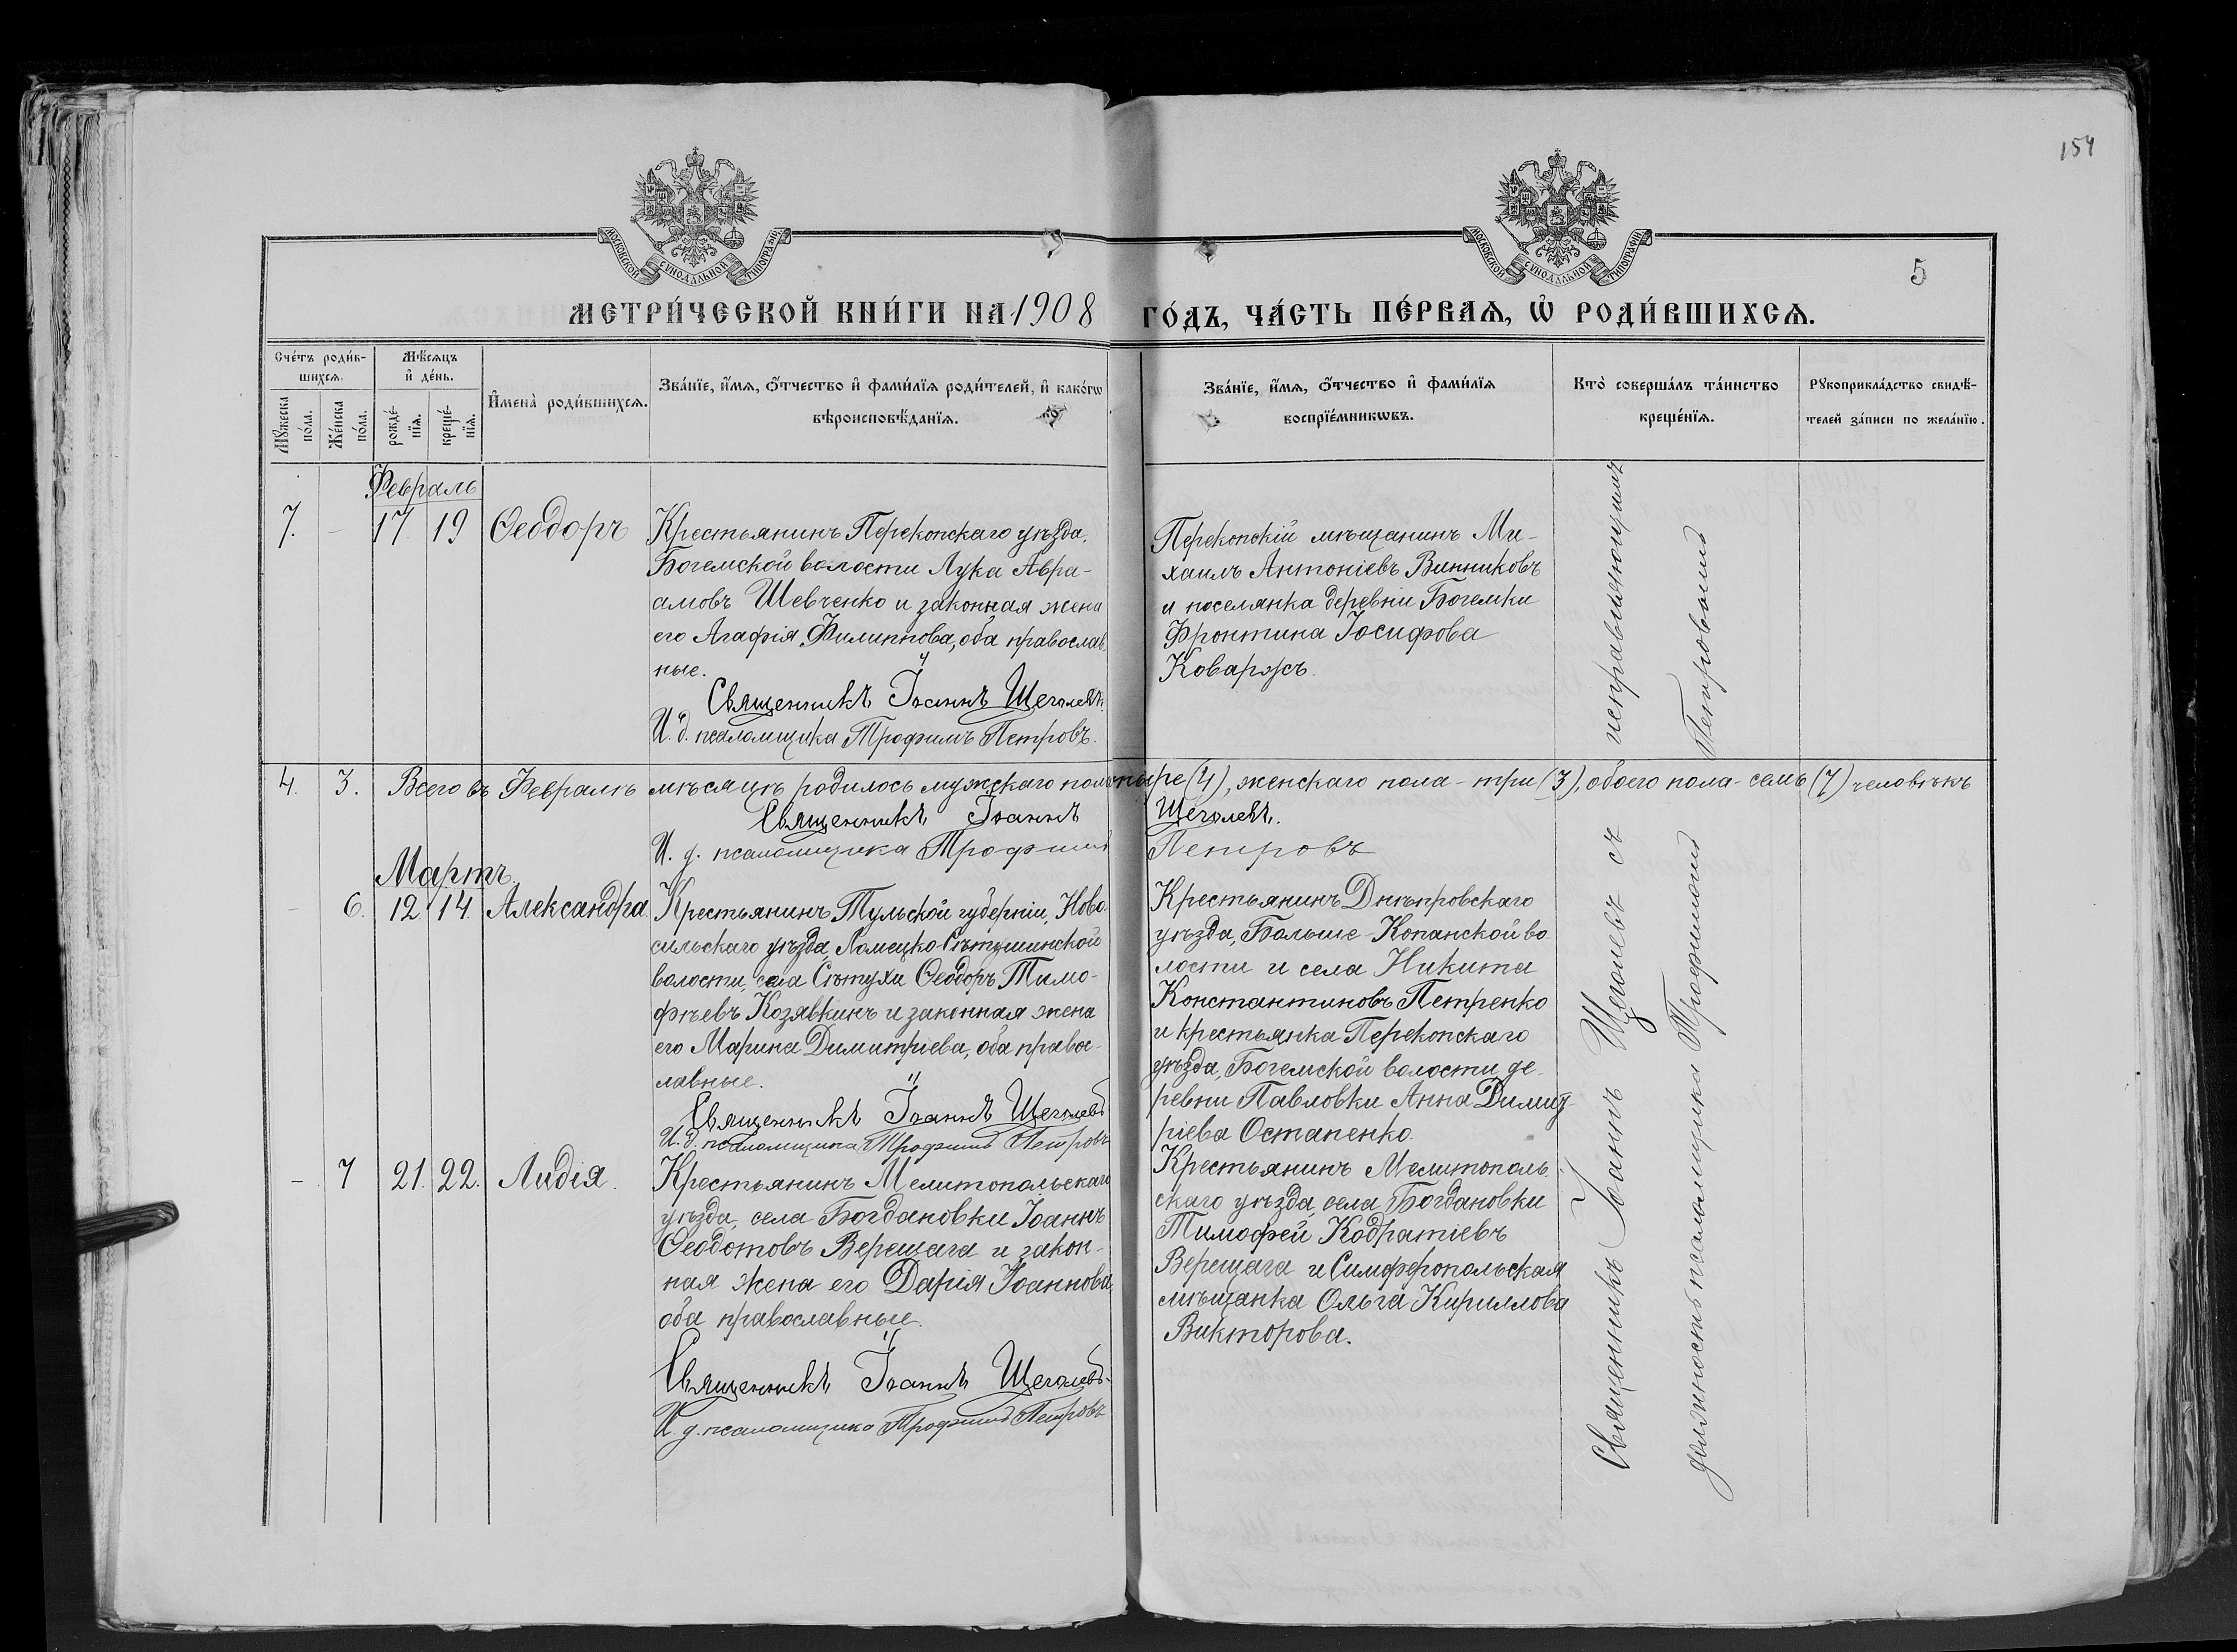 154
МОСКОВСКОЙ СѴНОДАЛЬНОЙ ТИПОГРАФІИ
МОСКОВСКОЙ СѴНОДАЛЬНОЙ ТИПОГРАФІИ
5
МЕТРИ́ЧЕСКОЙ КНИ́ГИ НА 1908 ГО́ДЪ, ЧА́СТЬ ПЕ́РВАѦ, Ѡ҆ РОДИ́ВШИХСѦ.
Сче́тъ роди́в-
шихсѧ.
Мꙋ́жеска по́ла.
Же́нска по́ла.
Мѣ́сѧцъ
и҆ де́нь.
рожде́-
нїѧ.
креще́-
нїѧ.
И҆мена̀ роди́вшихсѧ.
Зва́нїе, и҆́мѧ, ѻ҆́тчество и҆ фами́лїѧ роди́телей, и҆ како́гѡ
вѣроисповѣ́данїѧ.
Зва́нїе, и҆́мѧ, ѻ҆́тчество и҆ фами́лїѧ
воспрїе́мникѡвъ.
Кто̀ соверша́лъ та́инство
креще́нїѧ.
Рꙋкоприкла́дство свидѣ́-
телей за́писи по жела́нїю.
Февраль
7. – 17. 19 Ѳеодоръ
Крестьянинъ Перекопскаго уѣзда,
Богемской волости Лука Авра-
амовъ Шевченко и законная жена
его Агафія Филиппова, оба православ
ные.
Священникъ Іоаннъ Щеголевъ.
И. д. псаломщика Трофимъ Петровъ.
Перекопскій мѣщанинъ Ми-
хаилъ Антоніевъ Винниковъ
и поселянка деревни Богемки
Фронтина Іосифова
Коваржъ.
4. 3. Всего въ Февралѣ мѣсяцѣ родилось мужскаго пола тыре (4), женскаго пола - три (3), обоего пола - семь (7) человѣкъ
Священникъ Іоаннъ Щеголевъ.
И. д. псаломщика Трофимъ Петровъ
Мартъ.
– 6. 12. 14. Александра
Крестьянинъ Тульской губерніи, Ново
сильскаго уѣзда, Ломецко-Сѣтушинской
волости, села Сѣтухи Ѳеодоръ Тимо-
фѣевъ Козявкинъ и законная жена
его Марина Димитріева, оба правос-
лавные.
Священникъ Іоаннъ Щеголевъ
И. д. псаломщика Трофимъ Петровъ
Крестьянинъ Днѣпровскаго
уѣзда, Больше-Копанской во
лости и села Никита
Константиновъ Петренко
и крестьянка Перекопскаго
уѣзда, Богемской волости, де-
ревни Павловки Анна Димит-
ріева Остапенко.
– 7 21. 22. Лидія.
Крестьянинъ Мелитопольскаго
уѣзда, села Богдановки Іоаннъ
Ѳеодотовъ Верещага и закон-
ная жена его Дарія Іоаннова,
оба православные.
Священникъ Іоаннъ Щеголевъ.
И. д. псаломщика Трофимъ Петровъ
Крестьянинъ Мелитополь
скаго уѣзда, села Богдановки
Тимофей Кодратіевъ
Верещага и Симферопольская
мѣщанка Ольга Кириллова
Викторова.
Священникъ Іоаннъ Щеголевъ съ исправляющимъ
должность псаломщика Трофимомъ Петровымъ